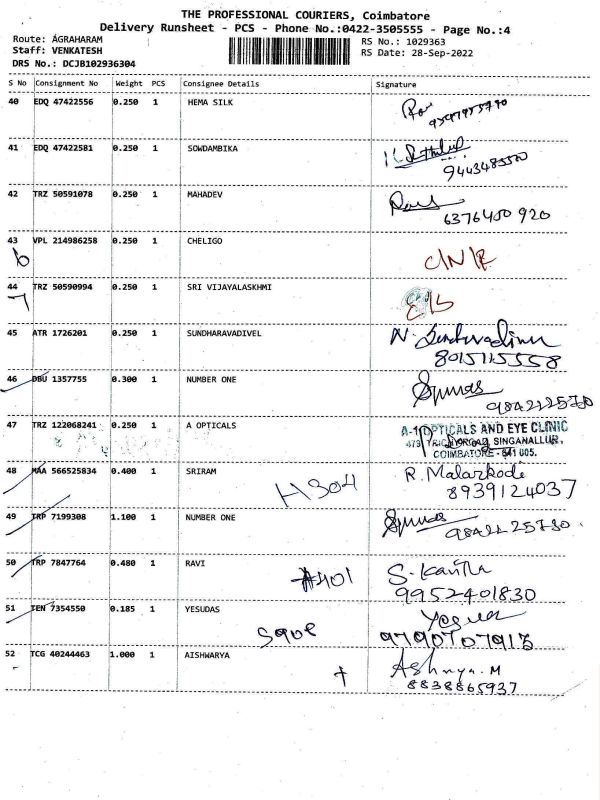 THE PROFESSIONAL COURIERS, Coimbatore
Delivery Runsheet - PCS - Phone No.:0422-3505555 - Page No.:4
Route: AGRAHARAM
Staff: VENKATESH
DRS No.: DCJB102936304
RS No.: 1029363
RS Date: 28-Sep-2022
S No Consignment No Weight PCS Consignee Details Signature
40 EDQ 47422556 0.250 1 HEMA SILK
41 EDQ 47422581 0.250 1 SOWDAMBIKA
9443485520
42 TRZ 50591078 0.250 1 MAHADEV
6376450920
43 VPL 214986258 0.250 1 CHELIGO
6 C/N/R
44 TRZ 50590994 0.250 1 SRI VIJAYALASKHMI
7
45 ATR 1726201 0.250 1 SUNDHARAVADIVEL N. Sundaravadivelu
8015115558
46 DBU 1357755 0.300 1 NUMBER ONE
9842225730
47 TRZ 122068241 0.250 1 A OPTICALS A-1 OPTICALS AND EYE CLINIC
SINGANALLUR,
COIMBATORE - 641 005.
48 MAA 566525834 0.400 1 SRIRAM R. Malarkodi
H304 8939124037
49 TRP 7199308 1.100 1 NUMBER ONE
9842225730
50 TRP 7847764 0.480 1 RAVI S. Kavitha
A401 9952401830
51 TEN 7354550 0.185 1 YESUDAS
S908 9790707913
52 TCG 40244463 1.000 1 AISHWARYA
8838865937